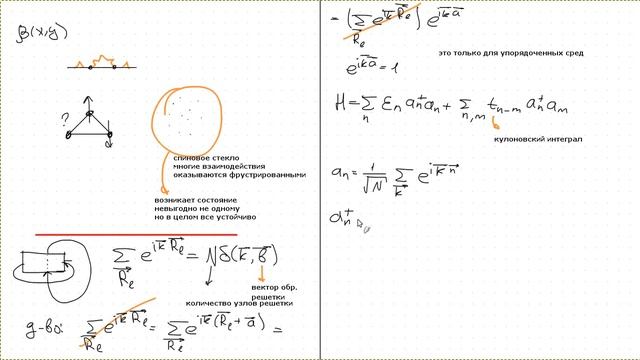 β(x,y)
?
спиновое стекло
многие взаимодействия
оказываются фрустрированными
возникает состояние
невыгодно не одному
но в целом все устойчиво
∑_{R⃗_ℓ} e^{ik⃗R⃗_ℓ} = Nδ(k⃗,b⃗)
вектор обр.
решетки
количество узлов решетки
д-во: ∑_{R⃗_ℓ} e^{ik⃗R⃗_ℓ} = ∑_{R⃗_ℓ} e^{ik⃗(R⃗_ℓ + a⃗)} =
= (∑_{R⃗_ℓ} e^{ik⃗R⃗_ℓ}) e^{ik⃗a⃗}
это только для упорядоченных сред
e^{ik⃗a⃗} = 1
H = ∑_n ε_n a_n^+ a_n + ∑_{n,m} t_{n-m} a_n^+ a_m
кулоновский интеграл
a_n = 1/√N ∑_{k⃗} e^{ik⃗n⃗}
a_n^+